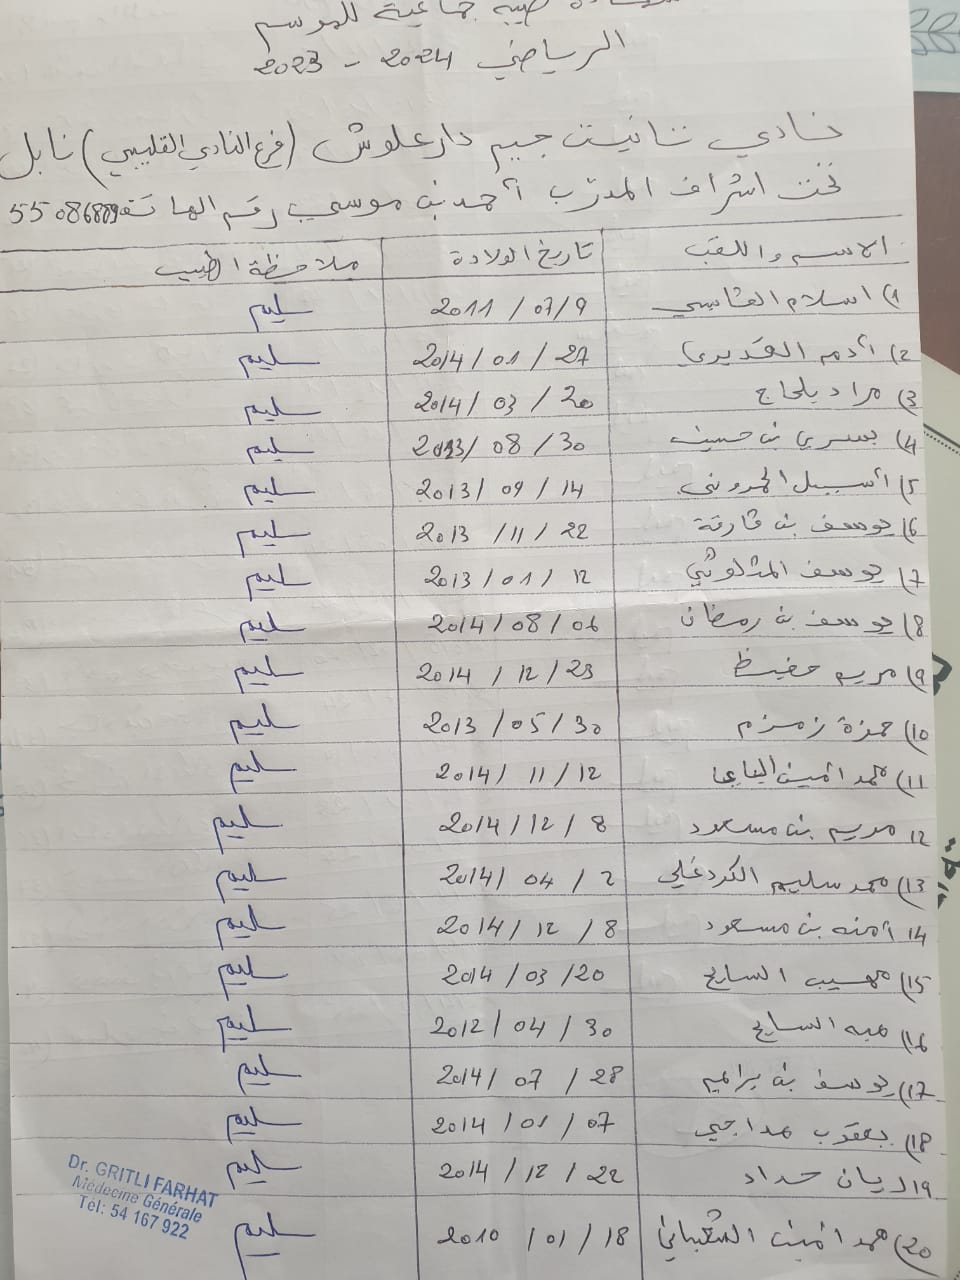 شهادة طبية جماعية للموسم
الرياضي 2024 - 2023
نادي تانيت جيم دار علوش (فرع النادي القليبي) نابل
تحت اشراف المدرب أحمد بن موسى رقم الهاتف 55086889
الاسم واللقب تاريخ الولادة ملاحظة الطبيب
1) اسلام القاسمي 2011/07/9 سليم
2) أدم القديري 2014/01/27 سليم
3) مراد بلحاج 2014/03/20 سليم
4) يسري بن حسين 2013/08/30 سليم
5) أسيل الحمروني 2013/09/14 سليم
6) يوسف بن قارقة 2013/11/22 سليم
7) يوسف المثلوثي 2013/01/12 سليم
8) يوسف بن رمضان 2014/08/06 سليم
9) مريم حفيظ 2014/12/23 سليم
10) حمزة زمزم 2013/05/30 سليم
11) محمد امين 2014/11/12 سليم
12 مريم بن مسعود 2014/12/8 سليم
13) محمد سليم الكردغلي 2014/04/2 سليم
14 آمنه بن مسعود 2014/12/8 سليم
15) مهيب السايح 2014/03/20 سليم
16) هبه السايح 2012/04/30 سليم
17) يوسف بن براهيم 2014/07/28 سليم
18) يعقوب مداجي 2014/01/07 سليم
19 ريان حداد 2014/12/22 سليم
20) محمد امين الشعباني 2010/01/18 سليم
Dr. GRITLI FARHAT
Médecine Générale
Tél: 54 167 922